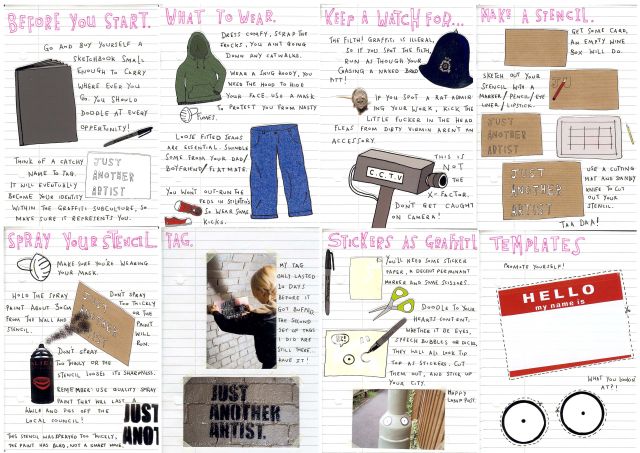 BEFORE YOU START.
GO AND BUY YOURSELF A
SKETCHBOOK SMALL
ENOUGH TO CARRY
WHERE EVER YOU
GO. YOU SHOULD
DOODLE AT EVERY
OPPERTUNITY!
THINK OF A CATCHY
NAME TO TAG.
IT WILL EVENTUALLY
BECOME YOUR IDENTITY
WITHIN THE GRAFFITI SUBCULTURE, SO
MAKE SURE IT REPRESENTS YOU.
JUST
ANOTHER
ARTIST
WHAT TO WEAR.
DRESS COMFY, SCRAP THE
FROCKS, YOU AINT GOING
DOWN ANY CATWALKS.
WEAR A SNUG HOODY, YOU
NEED THE HOOD TO HIDE
YOUR FACE. USE A MASK
TO PROTECT YOU FROM NASTY
FUMES.
LOOSE FITTED JEANS
ARE ESSENTIAL. SWINDLE
SOME FROM YOUR DAD/
BOYFRIEND/FLATMATE.
YOU WON'T OUT-RUN THE
FEDS IN STILETTOS
SO WEAR SOME
KICKS.
KEEP A WATCH FOR...
THE FILTH! GRAFFITI IS ILLEGAL,
SO IF YOU SPOT THE FILTH,
RUN AS THOUGH YOUR
GASING A NAKED BRAD
PITT!
IF YOU SPOT A RAT ADMIR-
ING YOUR WORK, KICK THE
LITTLE FUCKER IN THE HEAD.
FLEAS FROM DIRTY VIRMIN ARENT AN
ACCESSORY.
C.C.TV
THIS IS
NOT
THE
X-FACTOR.
DON'T GET CAUGHT
ON CAMERA!
MAKE A STENCIL.
GET SOME CARD,
AN EMPTY WINE
BOX WILL DO.
SKETCH OUT YOUR
STENCIL WITH A
MARKER/PENCIL/EYE
LINER/LIPSTICK.
JUST
ANOTHER
ARTIST
JUST
ANOTHER
ARTIST
USE A CUTTING
MAT AND STANLEY
KNIFE TO CUT
OUT YOUR
STENCIL.
TAA DAA!
SPRAY YOUR STENCIL
MAKE SURE YOU'RE WEARING
YOUR MASK.
HOLD THE SPRAY
PAINT ABOUT 30CM
FROM THE WALL AND
STENCIL.
JUST
ANOTHER
ARTIST
DON'T SPRAY
TOO THICKLY
OR THE
PAINT
WILL
RUN.
DON'T SPRAY
TOO THINLY OR THE
STENCIL LOOSES ITS SHARPNESS.
REMEMBER: USE QUALITY SPRAY
PAINT THAT WILL LAST A
WHILE AND PISS OFF THE
LOCAL COUNCIL!
JUST
ANOT
THIS STENCIL WAS SPRAYED TOO THICKLY,
THE PAINT HAS BLED, NOT A SMART MOVE.
TAG.
MY TAG
ONLY LASTED
10 DAYS
BEFORE IT
GOT BUFFED.
THE SECOND
SET OF TAGS
I DID ARE
STILL THERE..
HAVE IT!
JUST
ANOTHER
ARTIST.
STICKERS AS GRAFFITI
YOU'LL NEED SOME STICKER
PAPER, A DECENT PERMANENT
MARKER AND SOME SCISSORS.
DOODLE TO YOUR
HEARTS CONTENT,
WHETHER IT BE EYES,
SPEECH BUBBLES OR DICKS,
THEY WILL ALL LOOK TIP
TOP AS STICKERS. CUT
THEM OUT, AND STICK UP
YOUR CITY.
HAPPY
LAMP POST.
TEMPLATES
PROMOTE YOURSELF!
HELLO
my name is
WHAT YOU LOOKIN'
AT?!